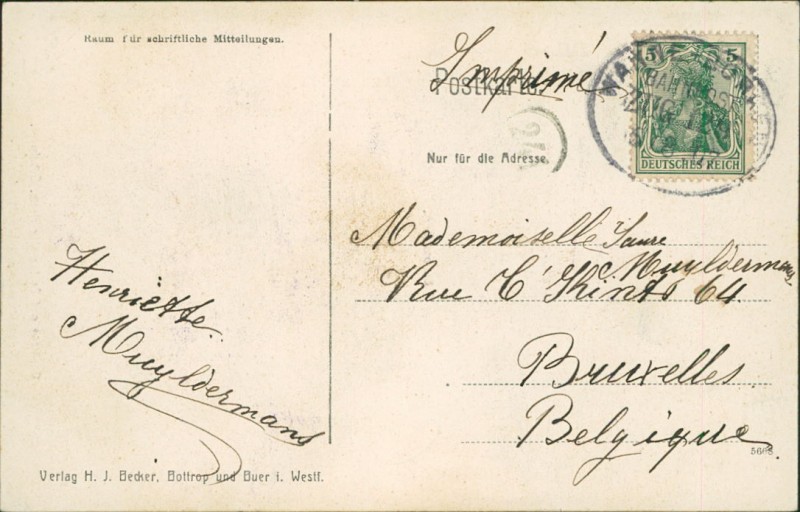 Raum für schriftliche Mitteilungen.
Imprimé
Postkarte.
Nur für die Adresse.
5 5
DEUTSCHES REICH
Mademoiselle
Muyldermans
Rue T'Kint 64
Bruxelles.
Belgique.
Henriette
Muyldermans
Verlag H. J. Becker, Bottrop und Buer i. Westf.